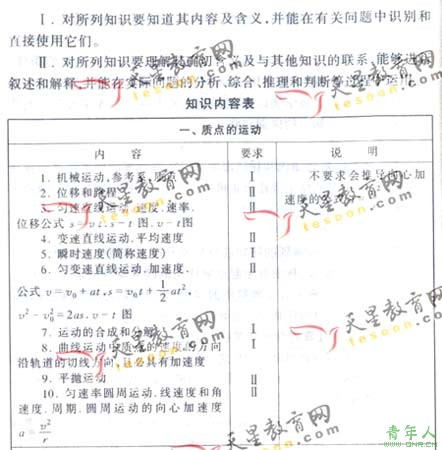 Ⅰ. 对所列知识要知道其内容及含义,并能在有关问题中识别和
直接使用它们。
Ⅱ. 对所列知识要理解其确切含义及与其他知识的联系,能够进行
叙述和解释,并能在实际问题的分析、综合、推理和判断等过程中运用。
知识内容表
一、质点的运动
内 容 要求 说 明
1. 机械运动,参考系,质点 Ⅰ 不要求会推导向心加
2. 位移和路程 Ⅱ 速度的
3. 匀速直线运动.速度.速率. Ⅱ
位移公式 s=vt.s-t 图.v-t图
4. 变速直线运动.平均速度 Ⅱ
5. 瞬时速度(简称速度) Ⅰ
6. 匀变速直线运动.加速度. Ⅱ
公式 v=v₀+at,s=v₀t+1/2at²,
v²-v₀²=2as.v-t 图
7. 运动的合成和分解 Ⅰ
8. 曲线运动中质点的速度的方向 Ⅰ
沿轨道的切线方向,且必具有加速度
9. 平抛运动 Ⅱ
10. 匀速率圆周运动.线速度和角 Ⅱ
速度.周期.圆周运动的向心加速度
a=v²/r
天星教育网
tesoon.com
天星教育网
tesoon.com
天星教育网
tesoon.com
天星教育网
tesoon.com
天星教育网
tesoon.com
青年人